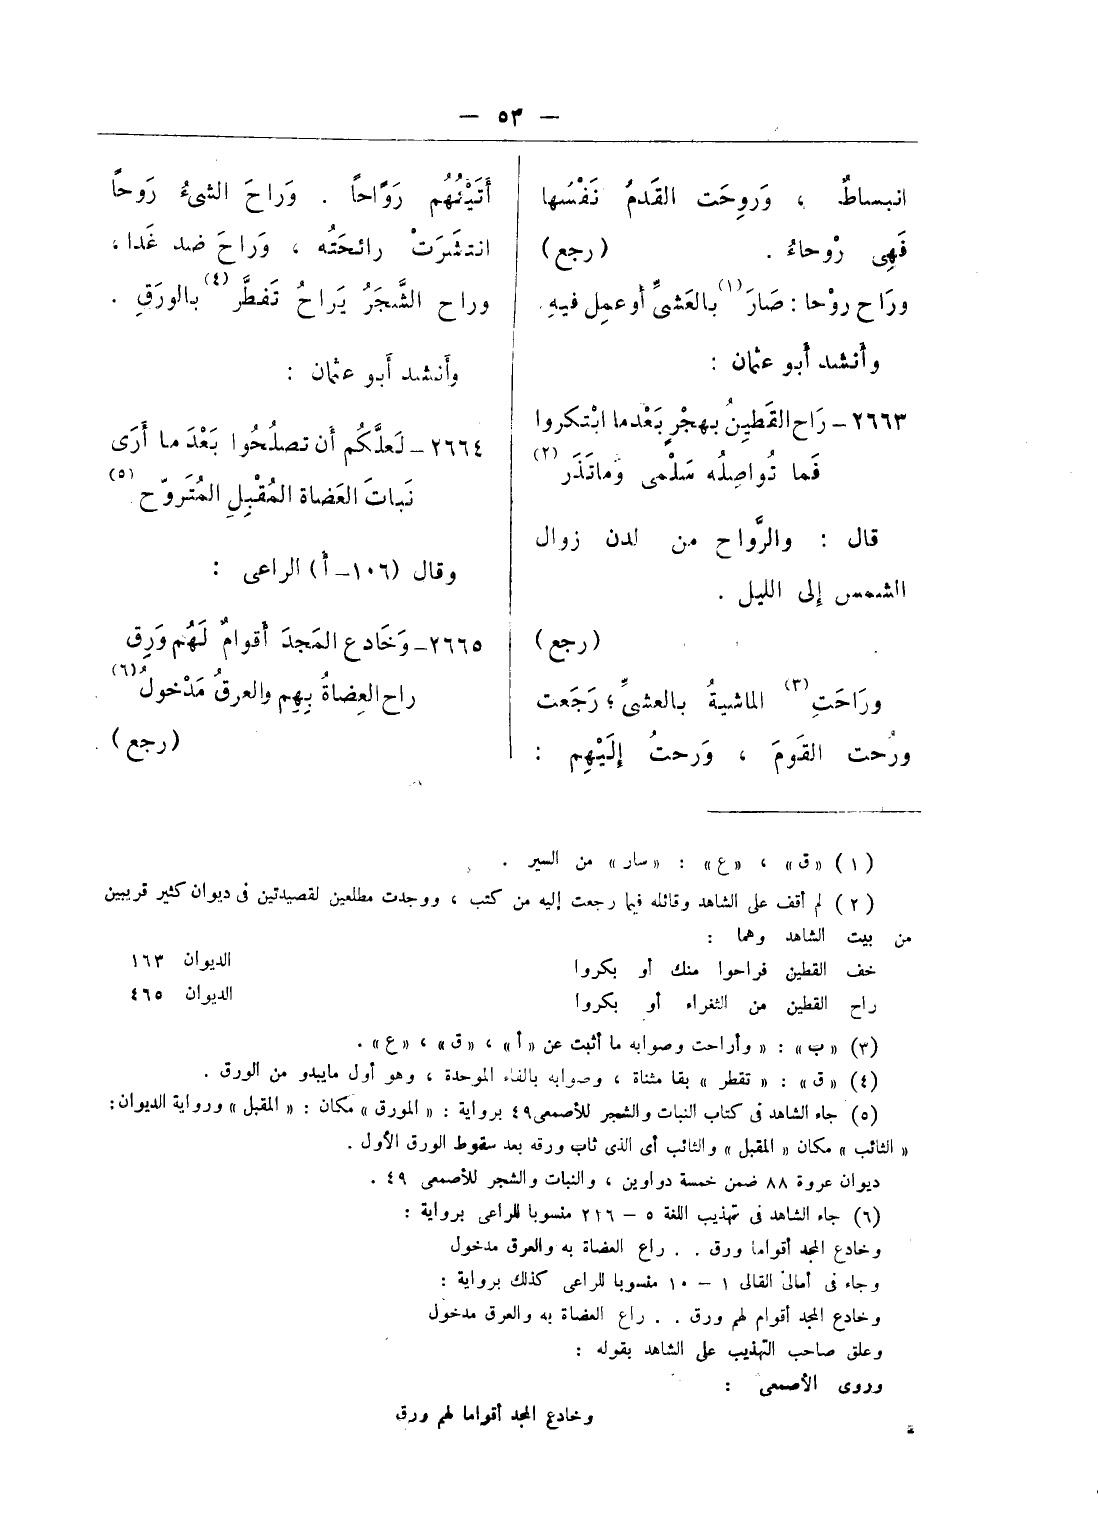 — ٥٣ —
انبساطٌ ، وَرَوِحَت القَدمُ نَفْسُها
فَهِى رْوحاءُ . (رجع)
ورَاح روْحا : صَارَ(١) بالعَشىِّ أو عمِل فيهِ.
وأَنشد أبو عثمان :
٢٦٦٣ – رَاح القَطِينُ بهجْرٍ بَعْدما ابْتكروا
فَما تُواصِلُه سَلْمى وَماتَذَر (٢)
قال : والرَّواح من لدن زوال
الشمس إلى الليل .
(رجع)
ورَاحَتِ (٣) الماشيةُ بالعشىِّ ؛ رَجَعت
ورُحت القَومَ ، وَرحتُ إلَيْهِم :
أَتَيْتُهُم رَوَاحاً . وَراحَ الشىءُ رَوحاً
انتشَرَتْ رائحَتُه ، وَراحَ ضد غَدا ،
وراح الشَّجَرُ يَراحُ تَفطَّر (٤) بالورَقِ .
وأَنشد أَبو عثمان :
٢٦٦٤ – لَعلَّكُم أَن تصلُحُوا بَعْدَ ما أَرَى
نَباتَ العَضاة المُقْبِلِ المُتَروّح (٥)
وقال (١٠٦ – أ) الراعى :
٢٦٦٥ – وَخَادع المَجدَ أَقوامٌ لَهُم وَرِق
راح العِضاةُ بِهِم والعرقُ مَدْخولُ (٦)
(رجع)
(١) «ق» ، «ع» : «سار» من السير .
(٢) لم أقف على الشاهد وقائله فيما رجعت إليه من كتب ، ووجدت مطلعين لقصيدتين فى ديوان كثير قريبين
من بيت الشاهد وهما :
خف القطين فراحوا منك أو بكروا الديوان ١٦٣
راح القطين من الثغراء أو بكروا الديوان ٤٦٥
(٣) «ب» : «وأراحت وصوابه ما أثبت عن «أ» ، «ق» ، «ع» .
(٤) «ق» : «تقطر» بقا مثناة ، وصوابه بالفاء الموحدة ، وهو أول مايبدو من الورق .
(٥) جاء الشاهد فى كتاب النبات والشجر للأصمعى ٤٩ برواية : «المورق» مكان : «المقبل» ورواية الديوان :
«الثائب» مكان «المقبل» والثائب أى الذى ثاب ورقه بعد سقوط الورق الأول .
ديوان عروة ٨٨ ضمن خمسة دواوين ، والنبات والشجر للأصمعى ٤٩ .
(٦) جاء الشاهد فى تهذيب اللغة ٥ – ٢١٦ منسوبا للراعى برواية :
وخادع المجد أقواما ورق . . راع العضاة به والعرق مدخول
وجاء فى أمالى القالى ١ – ١٠ منسوبا للراعى كذلك برواية :
وخادع المجد أقوام لهم ورق . . راع العضاة به والعرق مدخول
وعلق صاحب التهذيب على الشاهد بقوله :
وروى الأصمعى :
وخادع المجد أقواما لهم ورق